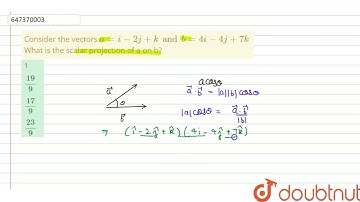 647370003
Consider the vectors a = i − 2j + k and b = 4i − 4j + 7k
What is the scalar projection of a on b?
1
19
9
17
9
23
9
a cosθ
a⃗ · b⃗ = |a||b| cosθ
|a| cosθ = a⃗ · b⃗
|b|
a⃗
θ
b⃗
⇒ (î − 2ĵ + k̂) (4î − 4ĵ + 7k̂)
doubtnut